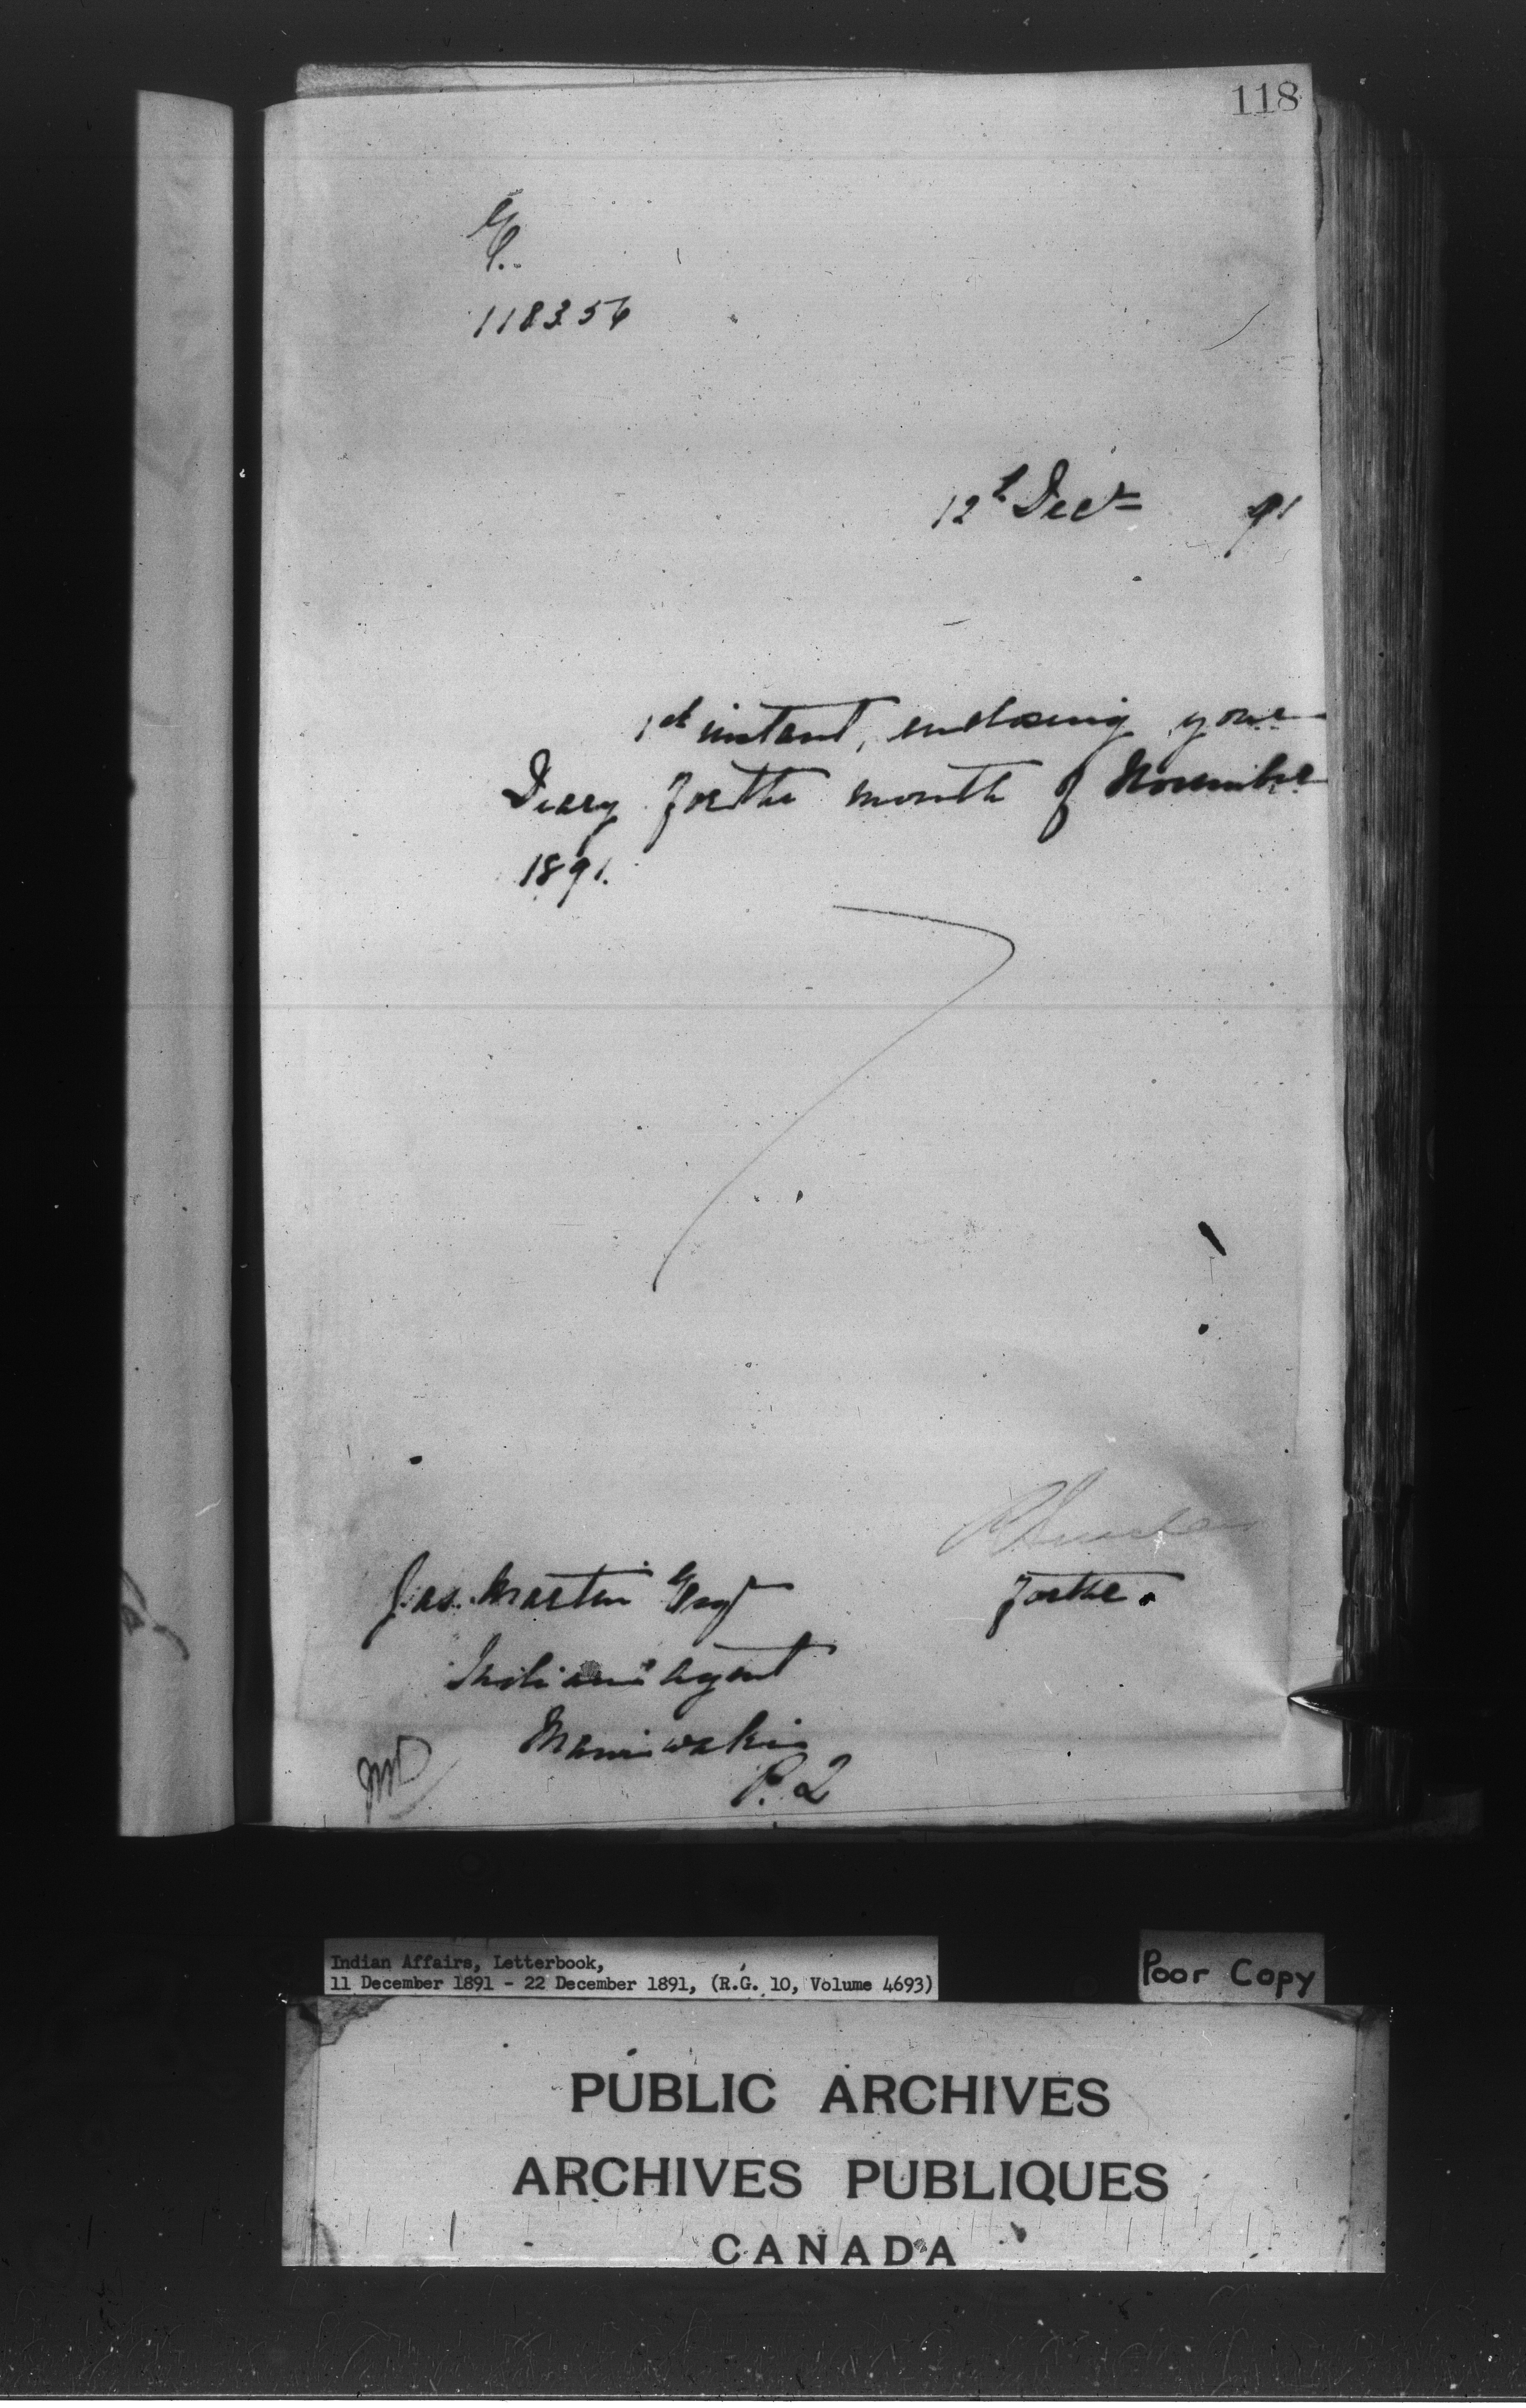 118
118356
12th Decr 91
1st instant, enclosing your
Diary for the month of November
1891.
Jas. Martin Esqr
for the.
Indian Agent
Maniwaki
P. Q
Indian Affairs, Letterbook,
11 December 1891 - 22 December 1891, (R.G. 10, Volume 4693)
Poor Copy
PUBLIC ARCHIVES
ARCHIVES PUBLIQUES
CANADA